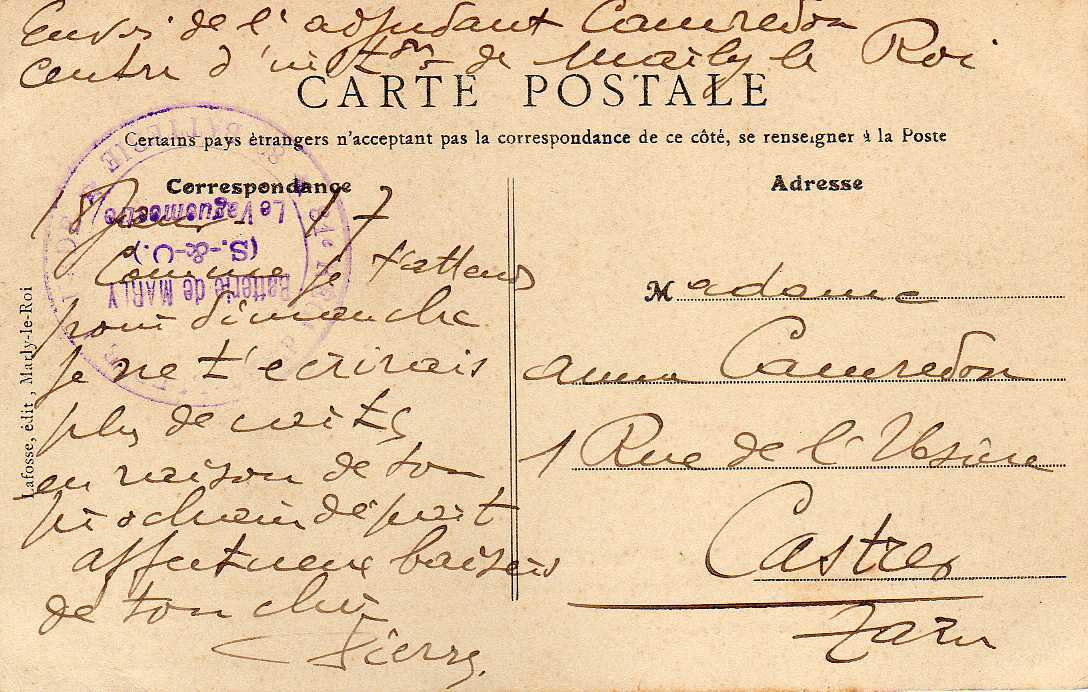 Envoi de l'adjudant Camredon
Centre d'in de Marly le Roi
CARTE POSTALE
Certains pays étrangers n'acceptant pas la correspondance de ce côté, se renseigner à la Poste
Correspondance
17
Comme je t'attends
pour dimanche
je ne t'ecrirais
plus de suite
en raison de ton
prochain départ
affectueux baisers
de ton cher
Pierre.
Le Vaguemestre
(S.-&-O.)
Batterie de MARLY
Lafosse, édit, Marly-le-Roi
Adresse
Madame
anna Camredon
1 Rue de l'Usine
Castres
Tarn